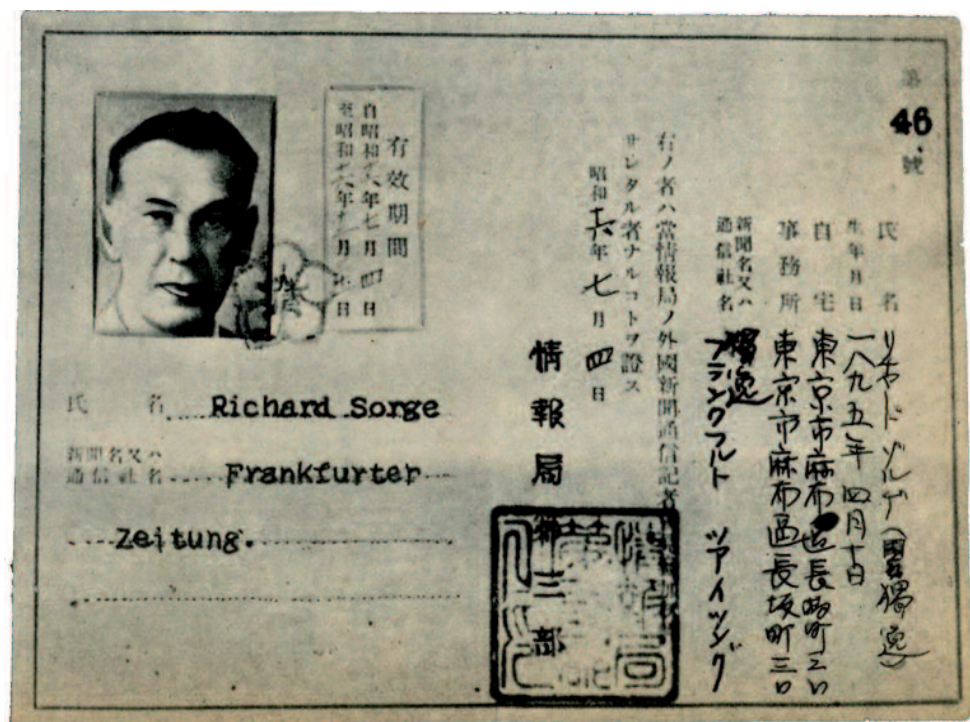 第
46
號
氏名 リヒヤード ゾルゲ（國名獨逸）
生年月日 一八九五年 四月十日
自宅 東京市麻布區長坂町
事務所 東京市麻布區長坂町三〇
新聞名又ハ
通信社名
獨逸
フランクフルト ツアイツング
右ノ者ハ當情報局ノ外國新聞通信記者
サレタル者ナルコトヲ證ス
昭和十六年七月四日
情報局第三部
有效期間
自昭和十六年七月四日
至昭和十六年
氏名 Richard Sorge
新聞名又ハ
通信社名 Frankfurter
Zeitung.